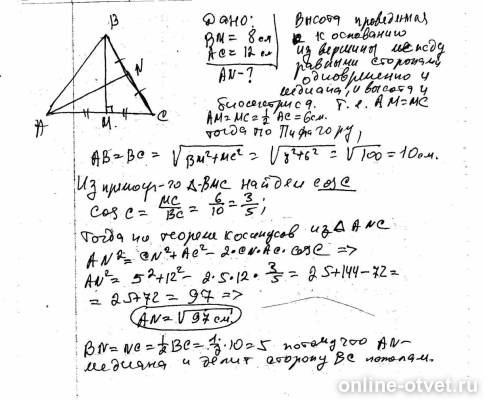 B
N
A
M
C
Дано:
BM = 8 см
AC = 12 см
AN - ?
Высота проведенная
к основанию
из вершины между
равными сторонами
одновременно и
медиана, и высота и
биссектриса. Т.е. AM=MC
AM=MC=½ AC=6см.
тогда по Пифагору,
AB=BC= √BM²+MC² = √8²+6² = √100 = 10см.
Из прямоуг-го Δ-BMC найдем cosC
cos C = MC/BC = 6/10 = 3/5;
Тогда по теореме косинусов из Δ ANC
AN² = CN²+AC²- 2·CN·AC·cosC =>
AN² = 5²+12²- 2·5·12·3/5 = 25+144-72=
= 25+72 = 97 =>
AN=√97 см
BN=NC=½BC=½·10=5 потому что AN-
медиана и делит сторону BC пополам.
online-otvet.ru